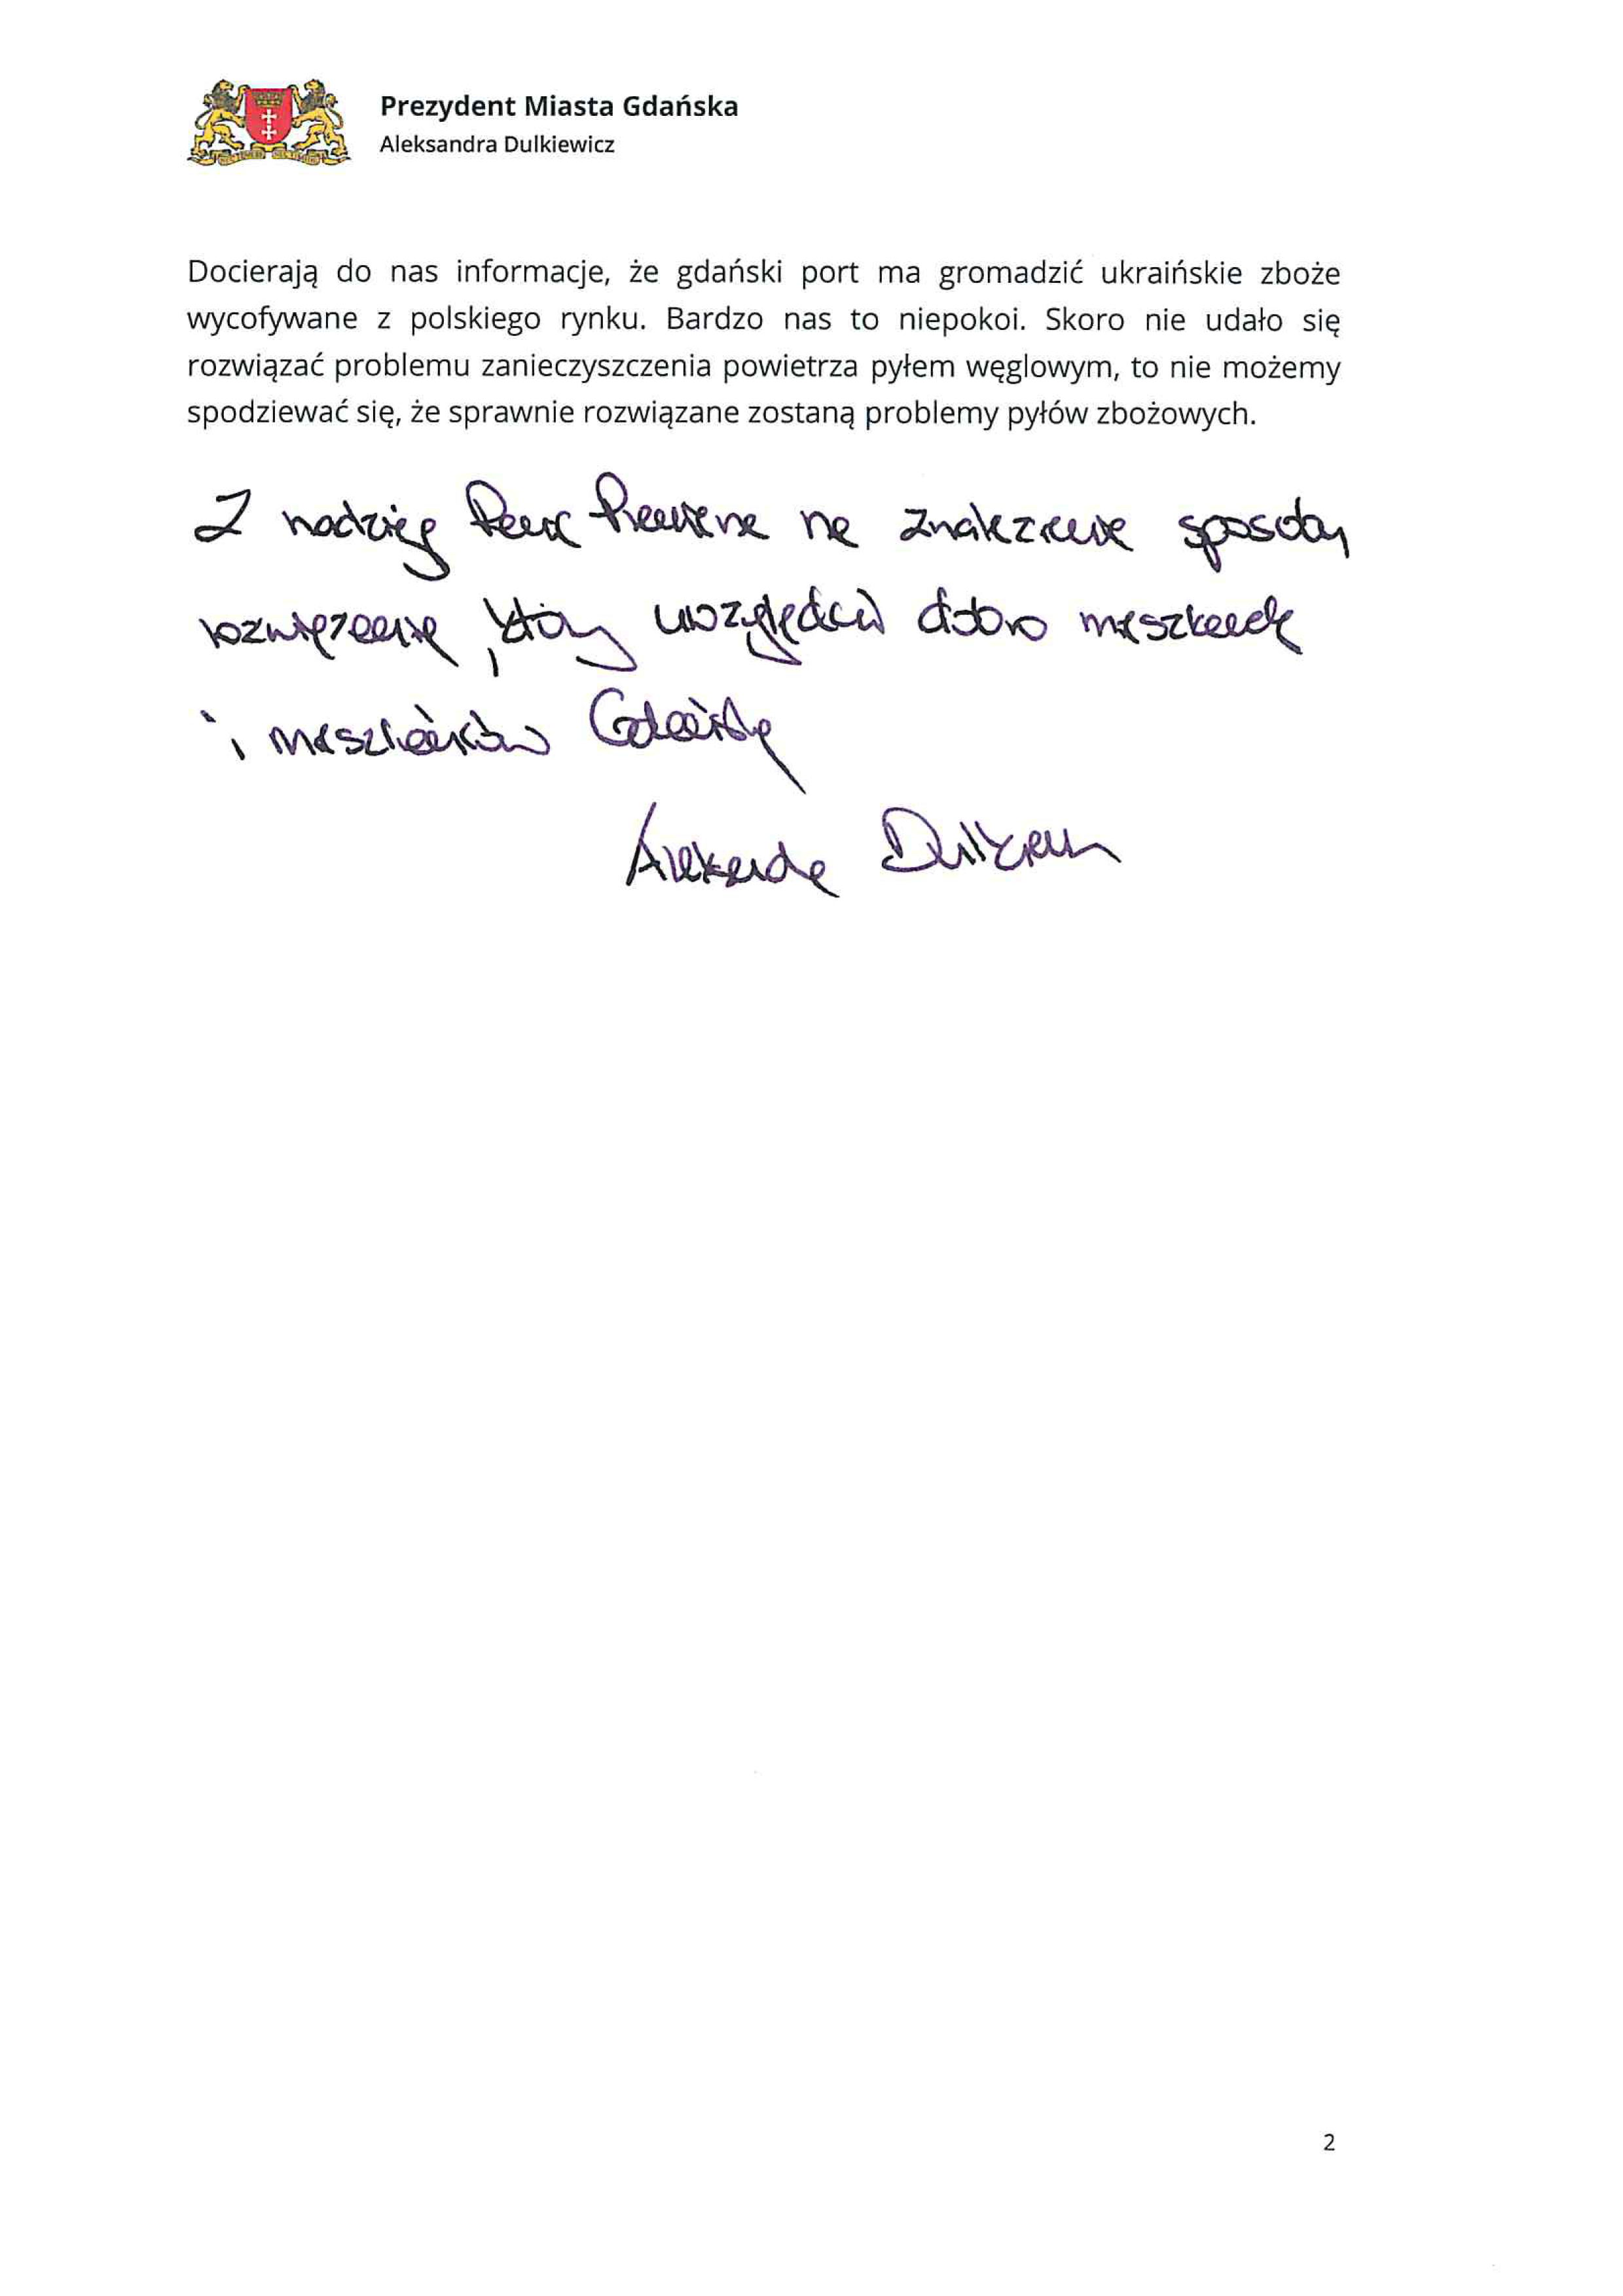 Prezydent Miasta Gdańska
Aleksandra Dulkiewicz
Docierają do nas informacje, że gdański port ma gromadzić ukraińskie zboże
wycofywane z polskiego rynku. Bardzo nas to niepokoi. Skoro nie udało się
rozwiązać problemu zanieczyszczenia powietrza pyłem węglowym, to nie możemy
spodziewać się, że sprawnie rozwiązane zostaną problemy pyłów zbożowych.
Z nadzieją Panie Premierze na znalezienie sposobu
rozwiązania, który uwzględni dobro mieszkanek
i mieszkańców Gdańska
Aleksandra Dulkiewicz
2